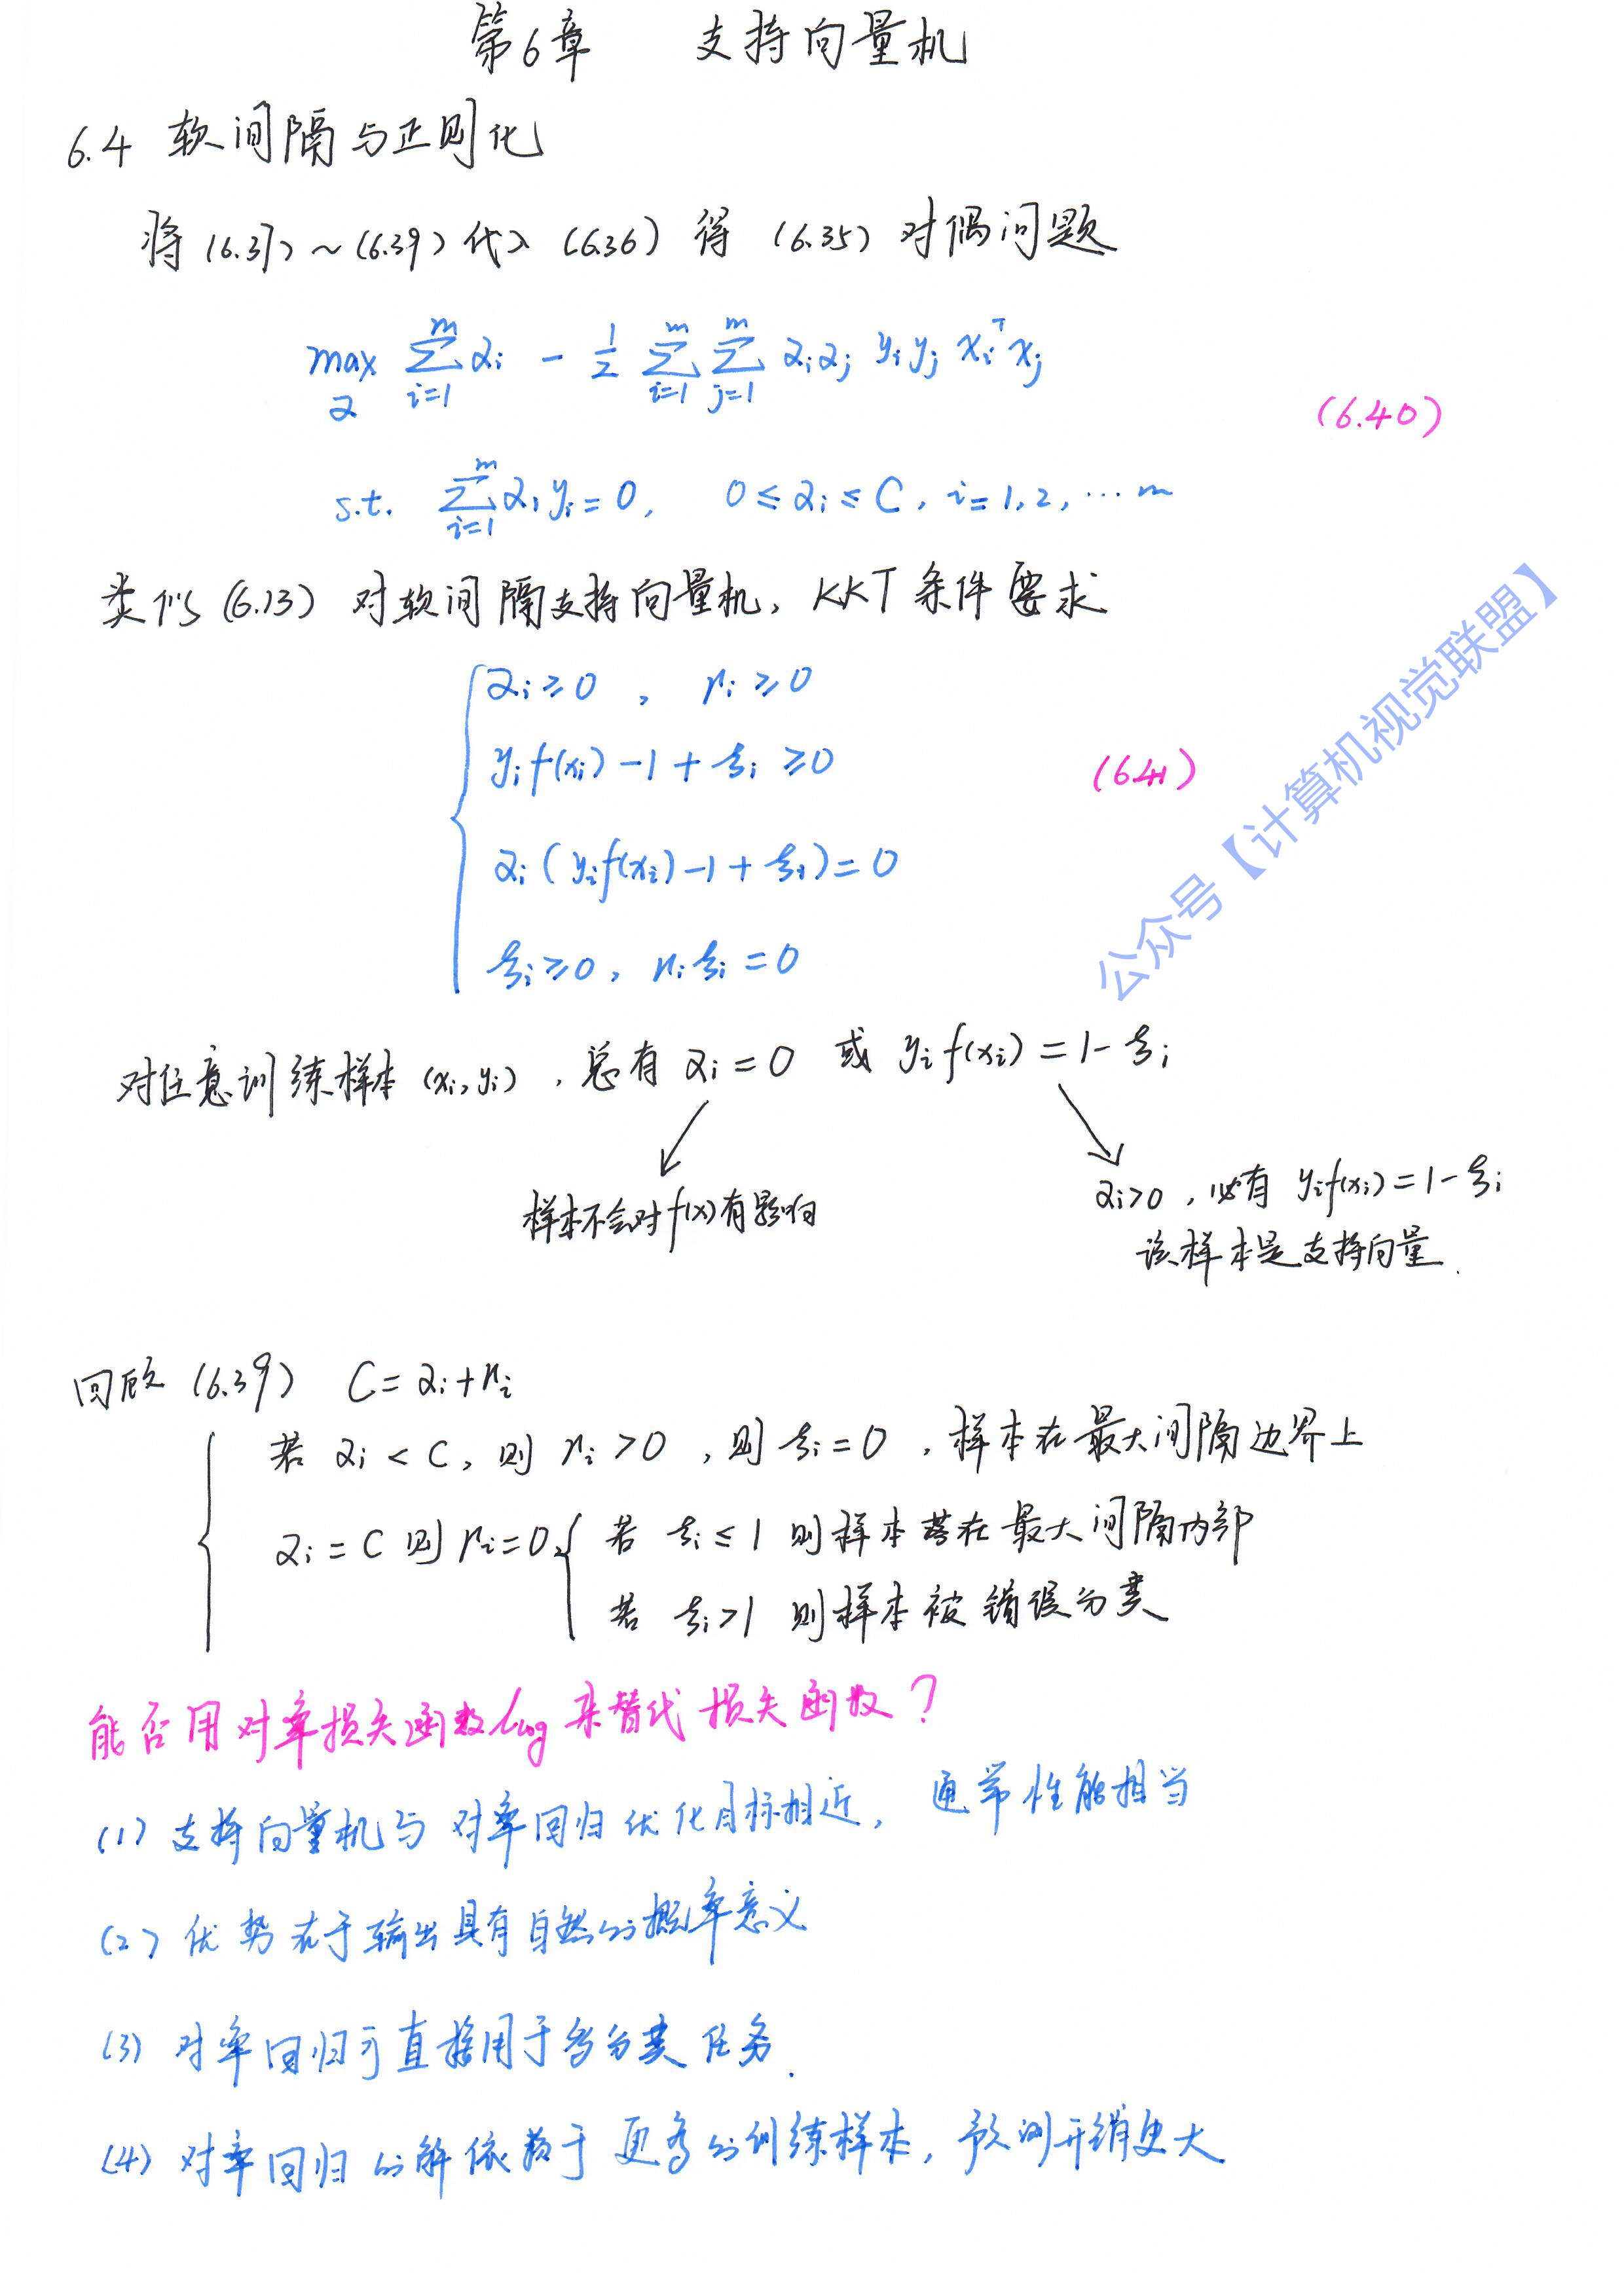 第6章 支持向量机
6.4 软间隔与正则化
将(6.37)~(6.39)代入(6.36)得(6.35)对偶问题
max_α Σ_{i=1}^{m} α_i - 1/2 Σ_{i=1}^{m} Σ_{j=1}^{m} α_i α_j y_i y_j x_i^T x_j
(6.40)
s.t. Σ_{i=1}^{m} α_i y_i = 0, 0 ≤ α_i ≤ C, i = 1, 2, … m
类似(6.13)对软间隔支持向量机, KKT条件要求
α_i ≥ 0, μ_i ≥ 0
y_i f(x_i) - 1 + ξ_i ≥ 0
(6.41)
α_i (y_i f(x_i) - 1 + ξ_i) = 0
ξ_i ≥ 0, μ_i ξ_i = 0
公众号【计算机视觉联盟】
对任意训练样本(x_i, y_i), 总有 α_i = 0 或 y_i f(x_i) = 1 - ξ_i
样本不会对f(x)有影响
α_i > 0, 必有 y_i f(x_i) = 1 - ξ_i
该样本是支持向量.
回顾(6.39) C = α_i + μ_i
若 α_i < C, 则 μ_i > 0, 则 ξ_i = 0, 样本在最大间隔边界上
α_i = C 则 μ_i = 0,
若 ξ_i ≤ 1 则样本落在最大间隔内部
若 ξ_i > 1 则样本被错误分类
能否用对率损失函数 l_log 来替代损失函数?
(1) 支持向量机与对率回归优化目标相近, 通常性能相当
(2) 优势在于输出具有自然的概率意义
(3) 对率回归可直接用于多分类任务.
(4) 对率回归的解依赖于更多的训练样本, 预测开销更大